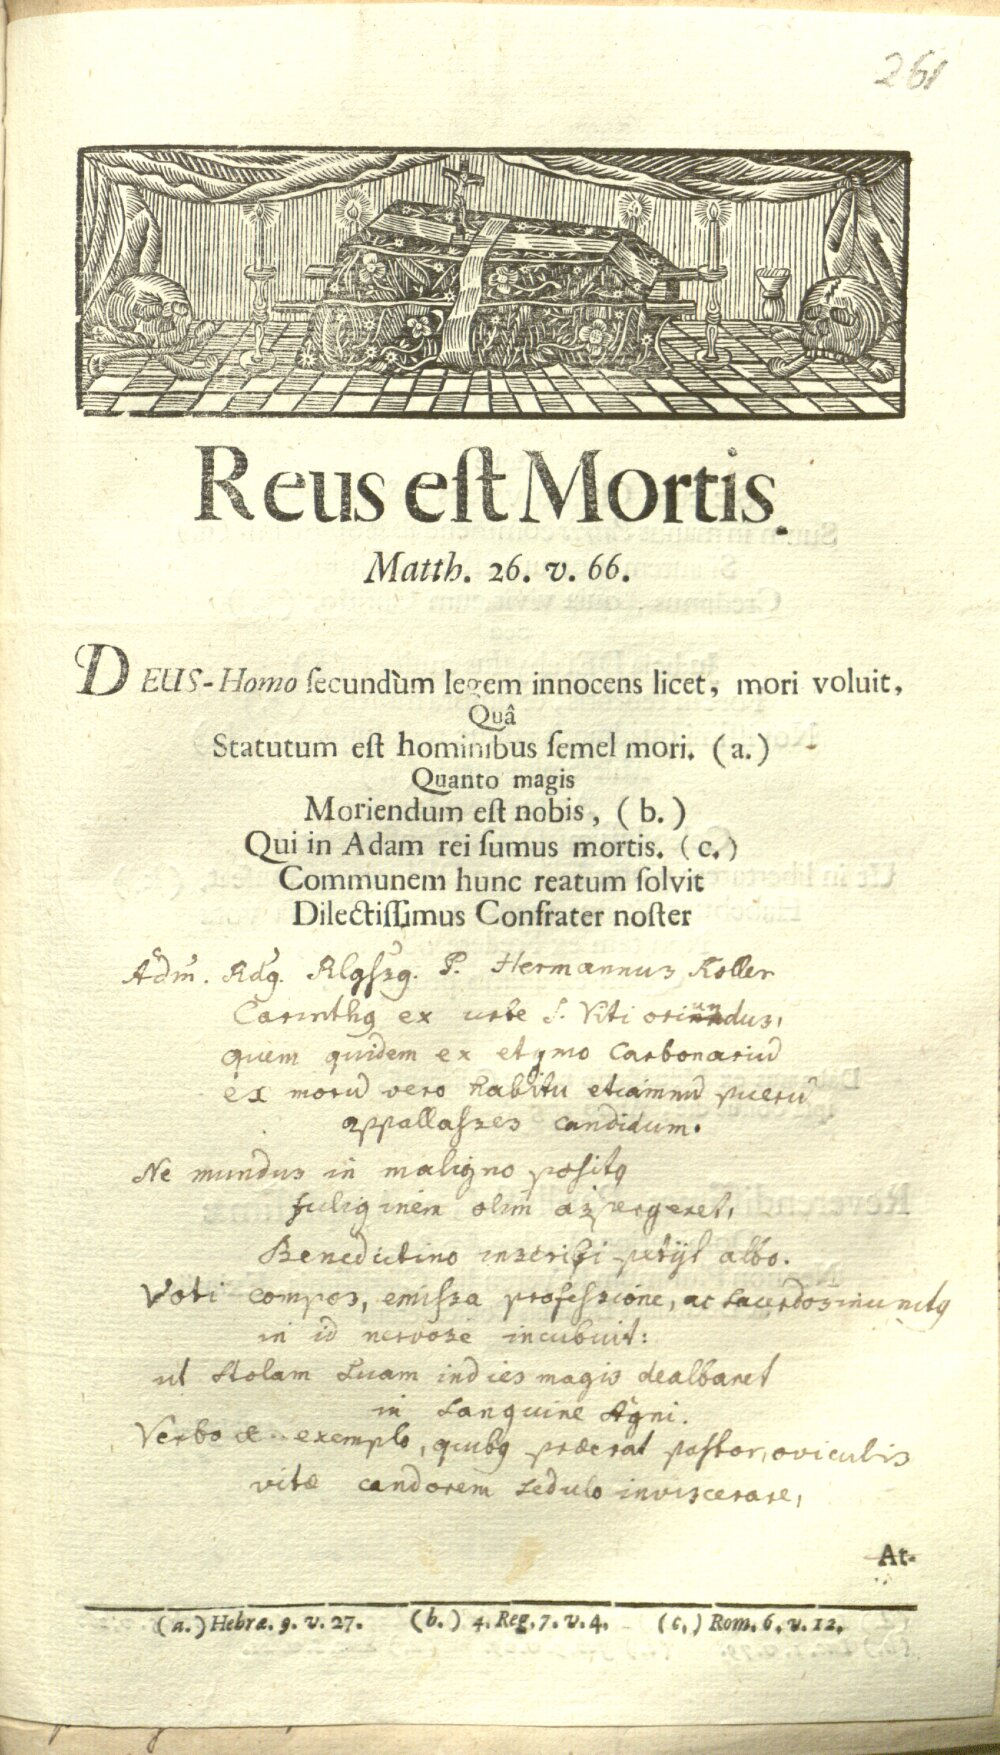 261
Reus eſt Mortis.
Matth. 26. v. 66.
DEUS-Homo ſecundùm legem innocens licet, mori voluit,
Quâ
Statutum eſt hominibus ſemel mori. (a.)
Quanto magis
Moriendum eſt nobis, (b.)
Qui in Adam rei ſumus mortis. (c.)
Communem hunc reatum ſolvit
Dilectiſſimus Confrater noſter
Adm. Rdg. Rlgſsg. P. Hermannus Koller
Carinthg ex urbe S. Viti oriundus,
quem quidem ex etymo Carbonariū
ex morū vero habitu etiamnū puerū
appallaſses candidum.
Ne mundus in maligno positg
fuliginem olim aspergeret,
Benedictino inscribi petijt albo.
Voti compos, emiſsa profeſsione, ac Sacerdos inunctg
in id nervose incubuit:
ut Stolam Suam indies magis dealbaret
in Sanguine Agni.
Verbo & exemplo, quibg præerat pastor, oviculis
vitæ candorem sedulo inviscerare,
At-
(a.) Hebræ. 9. v. 27. (b.) 4. Reg. 7. v. 4. (c.) Rom. 6. v. 12.